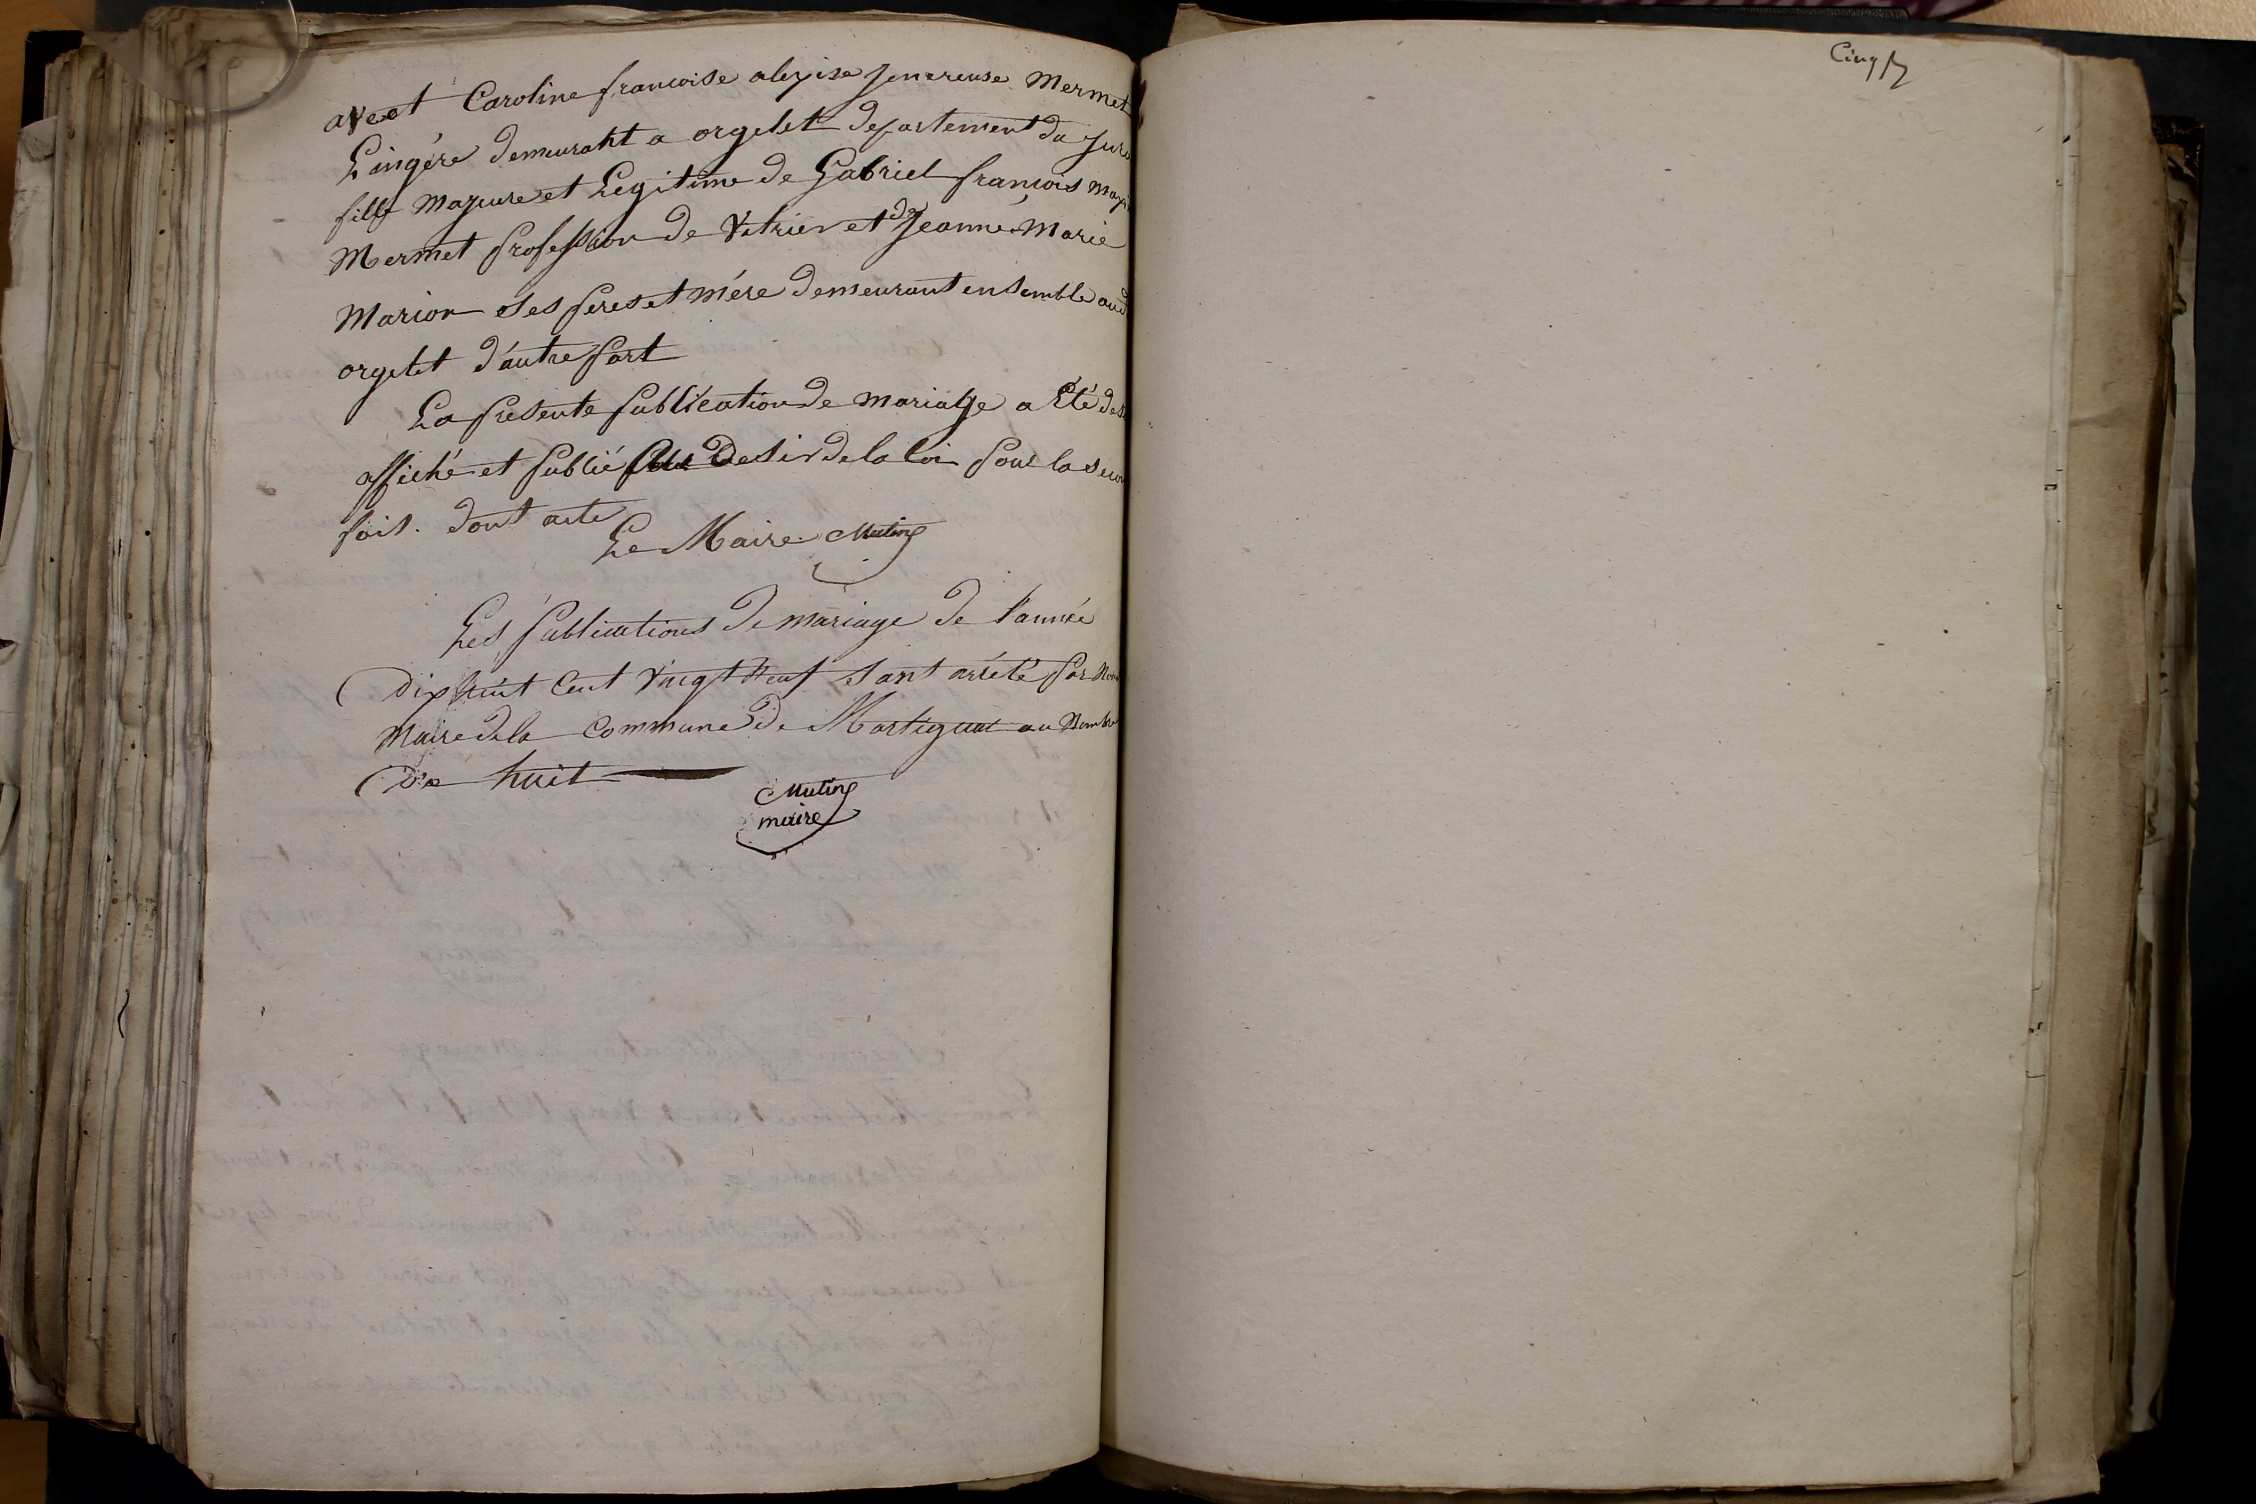 avect Caroline francoise alexise Jenereuse Mermet
Lingére demeurant a orgelet departement du Jura
fille Majeure et Legitime de Gabriel francois
Mermet profession de Vitrier et de Jeanne Marie
Marion Ses peres et mére demeurant ensemble aud
orgelet d'autre part
La presente publication de mariage a Eté
affiché et publié Au Desir de la loi pour la
fois. dont acte
Le Maire Mutin
Les publications de mariage de l'année
Dix huit Cent Vingt Neuf Sant arrété par
Maire de la Commune de Martignat au Nombre
De huit
Mutin
maire
Cinq